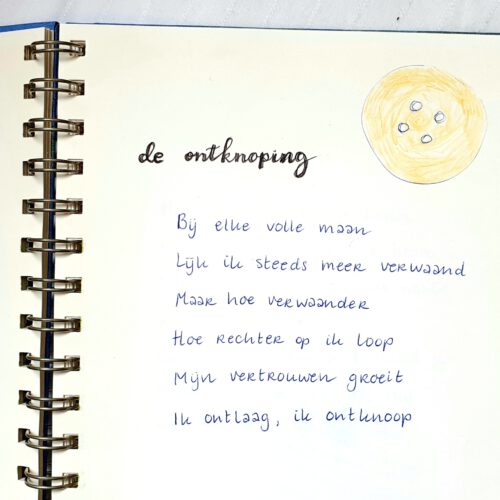 de ontknoping
Bij elke volle maan
Lijk ik steeds meer verwaand
Maar hoe verwaander
Hoe rechter op ik loop
Mijn vertrouwen groeit
Ik ontlaag, ik ontknoop